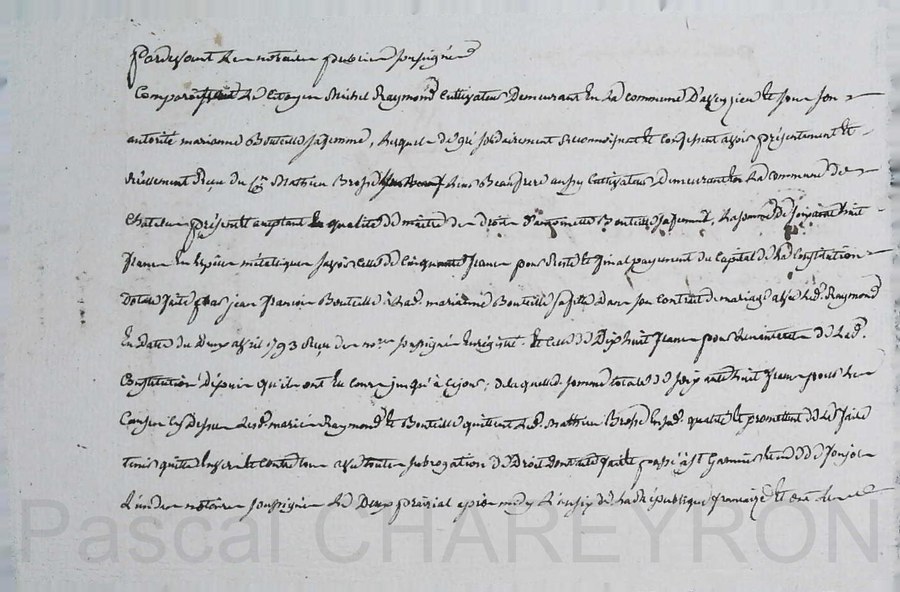 Pardevant les notaires publics soussignés
Comparoit le Citoyen Michel Raymond Cultivateur Demeurant En la commune D'asseyzieu et sous son
autorité marianne Bouteille sa femme, lesquels de gré solidairement Reconnoissent et confessent avoir présentement et
Réellement Reçu du Cen Mathieu Brosse leur Beaufrere aussy Cultivateur Demeurant En la commune de
présent et acceptant En qualité de maitre des droits d'antoinette Bouteille sa femme, la somme de soixante huit
francs En Espèces métalliques savoir celle de Cinquante francs pour Reste et final payement du Capital de la Constitution
Dotale faite par jean françois Bouteille à lad. marianne Bouteille sa fille dans son contrat de mariage avec led. Raymond
En date du Deux avril 1793 Reçu des nores soussignés Enregistré. Et celle de Dixhuit francs pour les interets de lad.
Constitution Depuis qu'ils ont Eu cours jusqu'à cejour; de laquelle somme totale de soixante huit francs pour les
Causes cy Dessus lesd. mariés Raymond et Bouteille quittent led. Mathieu Brosse En sad. qualité et promettent de les faire
tenir quitte Envers et contre tous avec toute subrogation de Droit dont acte fait et passé à St
L'un des notaires soussignés le Deux prairial après midy L'an six de la République française et ont les
Pascal CHAREYRON